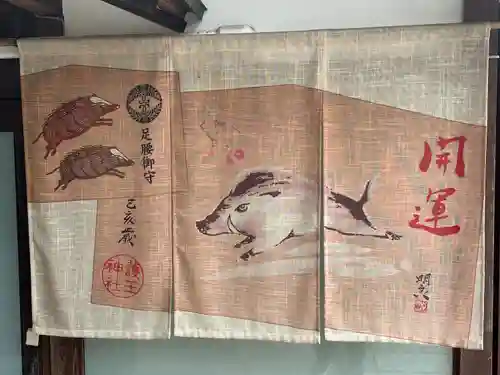 開運
足腰御守
己亥歳
護王
神社